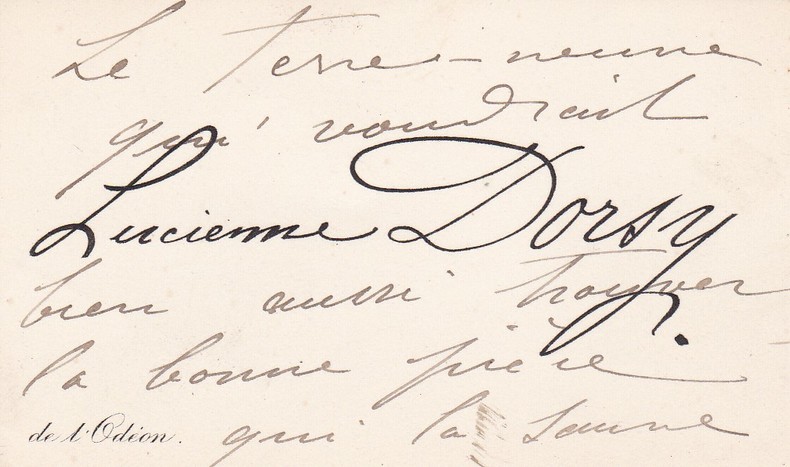 Le terre-neuve
qui voudrait
Lucienne Dorsy.
bien aussi trouver
la bonne pièce
qui la sauve
de l'Odéon.